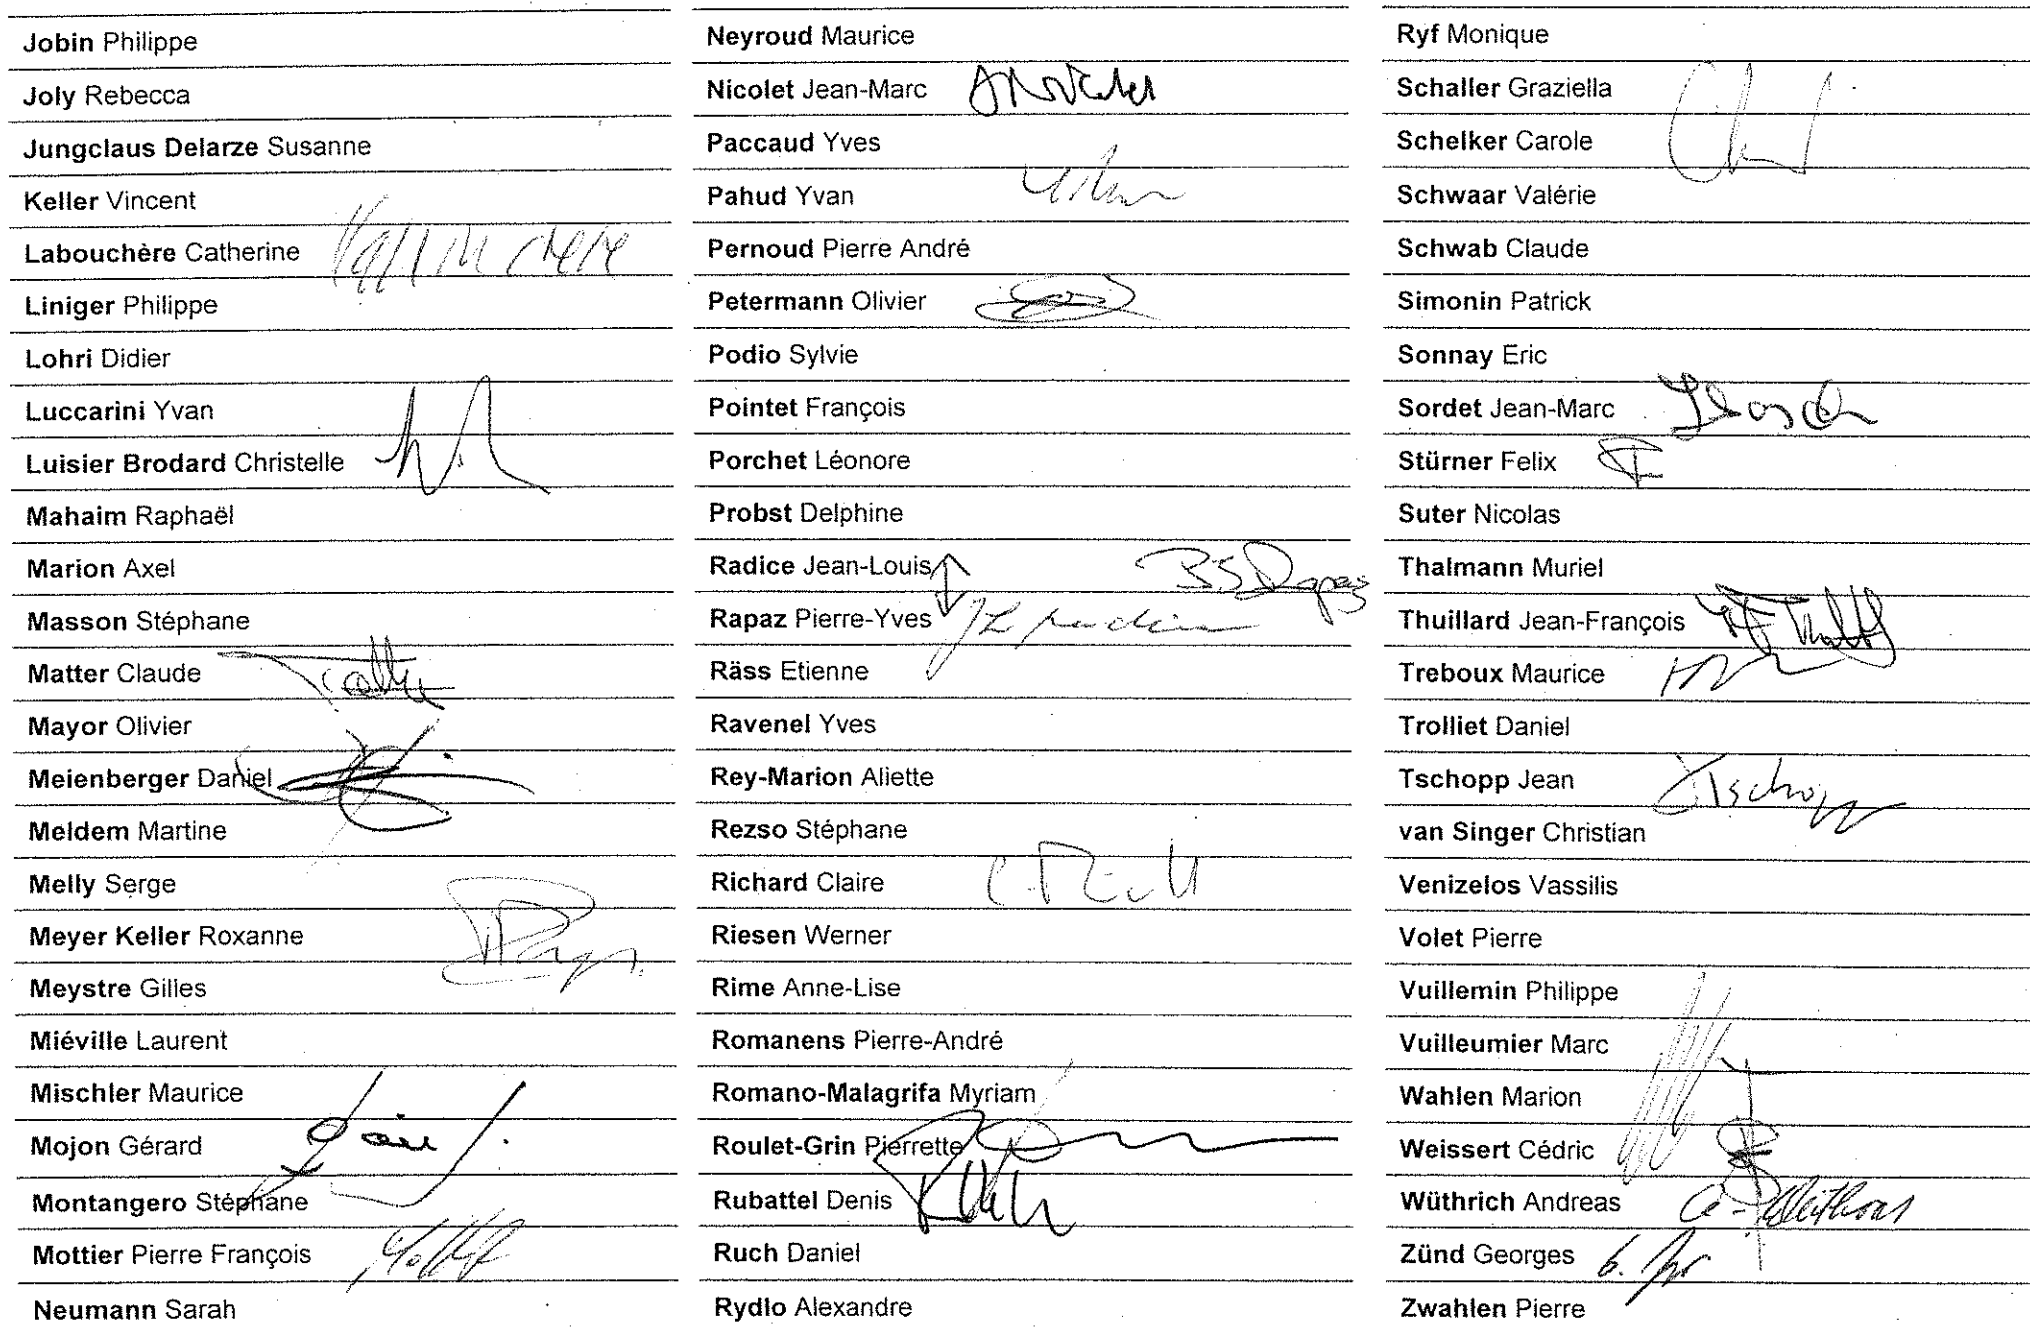 Jobin Philippe
Joly Rebecca
Jungclaus Delarze Susanne
Keller Vincent
Labouchère Catherine
Liniger Philippe
Lohri Didier
Luccarini Yvan
Luisier Brodard Christelle
Mahaim Raphaël
Marion Axel
Masson Stéphane
Matter Claude
Mayor Olivier
Meienberger Daniel
Meldem Martine
Melly Serge
Meyer Keller Roxanne
Meystre Gilles
Miéville Laurent
Mischler Maurice
Mojon Gérard
Montangero Stéphane
Mottier Pierre François
Neumann Sarah
Neyroud Maurice
Nicolet Jean-Marc
Paccaud Yves
Pahud Yvan
Pernoud Pierre André
Petermann Olivier
Podio Sylvie
Pointet François
Porchet Léonore
Probst Delphine
Radice Jean-Louis
Rapaz Pierre-Yves
Räss Etienne
Ravenel Yves
Rey-Marion Aliette
Rezso Stéphane
Richard Claire
Riesen Werner
Rime Anne-Lise
Romanens Pierre-André
Romano-Malagrifa Myriam
Roulet-Grin Pierrette
Rubattel Denis
Ruch Daniel
Rydlo Alexandre
Ryf Monique
Schaller Graziella
Schelker Carole
Schwaar Valérie
Schwab Claude
Simonin Patrick
Sonnay Eric
Sordet Jean-Marc
Stürner Felix
Suter Nicolas
Thalmann Muriel
Thuillard Jean-François
Treboux Maurice
Trolliet Daniel
Tschopp Jean JTschopp
van Singer Christian
Venizelos Vassilis
Volet Pierre
Vuillemin Philippe
Vuilleumier Marc
Wahlen Marion
Weissert Cédric
Wüthrich Andreas
Zünd Georges
Zwahlen Pierre